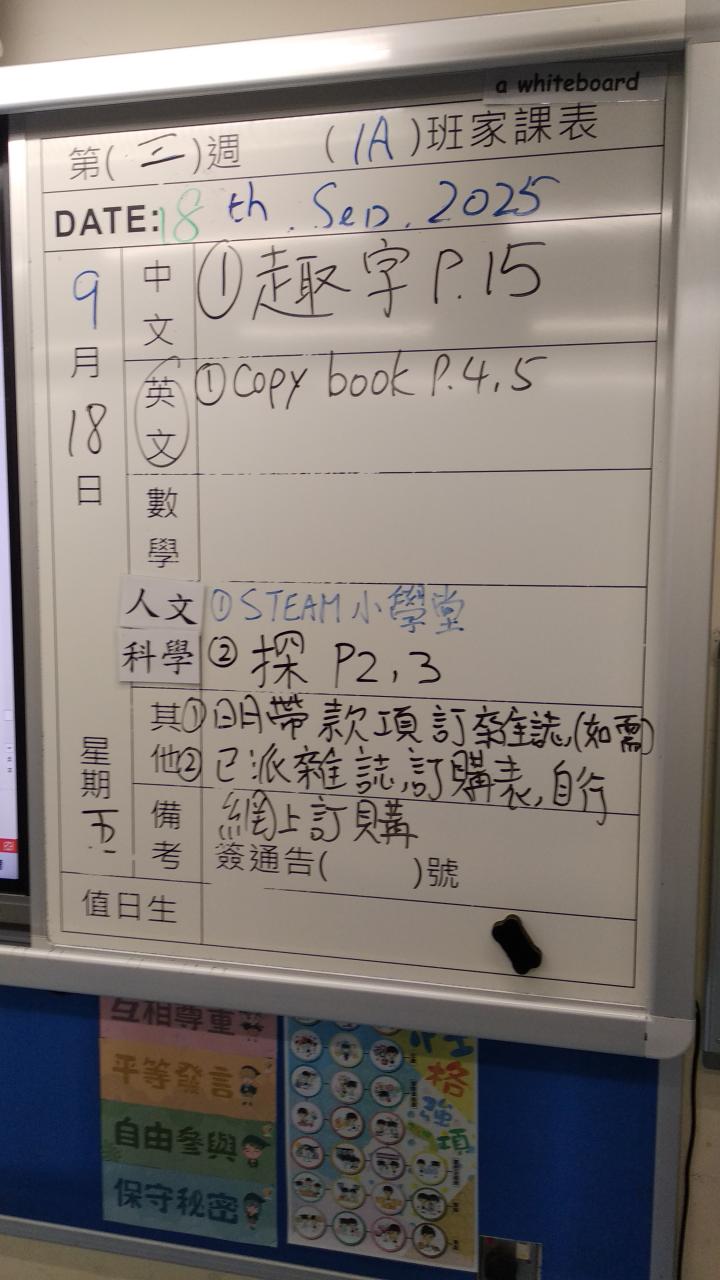 a whiteboard
第(三)週 (1A)班家課表
DATE: 18th. Sep. 2025
9月18日 星期五
中文 ①趣字 P.15
英文 ①Copy book P.4,5
數學
人文 ①STEAM小學堂
科學 ②探 P2,3
其他 ①明帶款項訂雜誌,(如需)
②已派雜誌訂購表,自行
網上訂購
備考 簽通告( )號
值日生
互相尊重
平等發言
自由參與
保守秘密
格
強
項